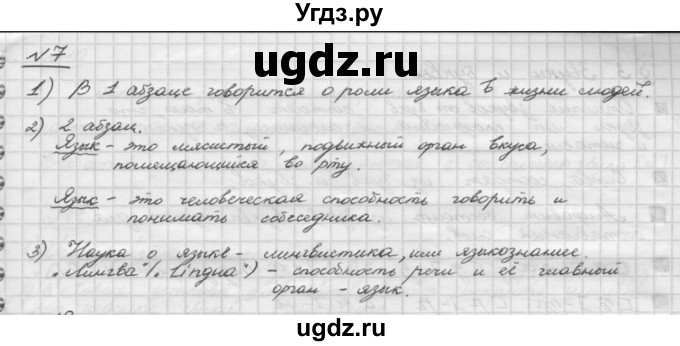 Угдз.ру
ugdz.ru
№7
1) В 1 абзаце говорится о роли языка в жизни людей.
2) 2 абзац.
Язык - это мясистый, подвижный орган вкуса,
помещающийся во рту.
ugdz.ru
Язык - это человеческая способность говорить и
понимать собеседника.
3) Наука о языке - лингвистика, или языкознание.
„Лингва“ („Lingua“) - способность речи и её главный
орган - язык.
ugdz.ru